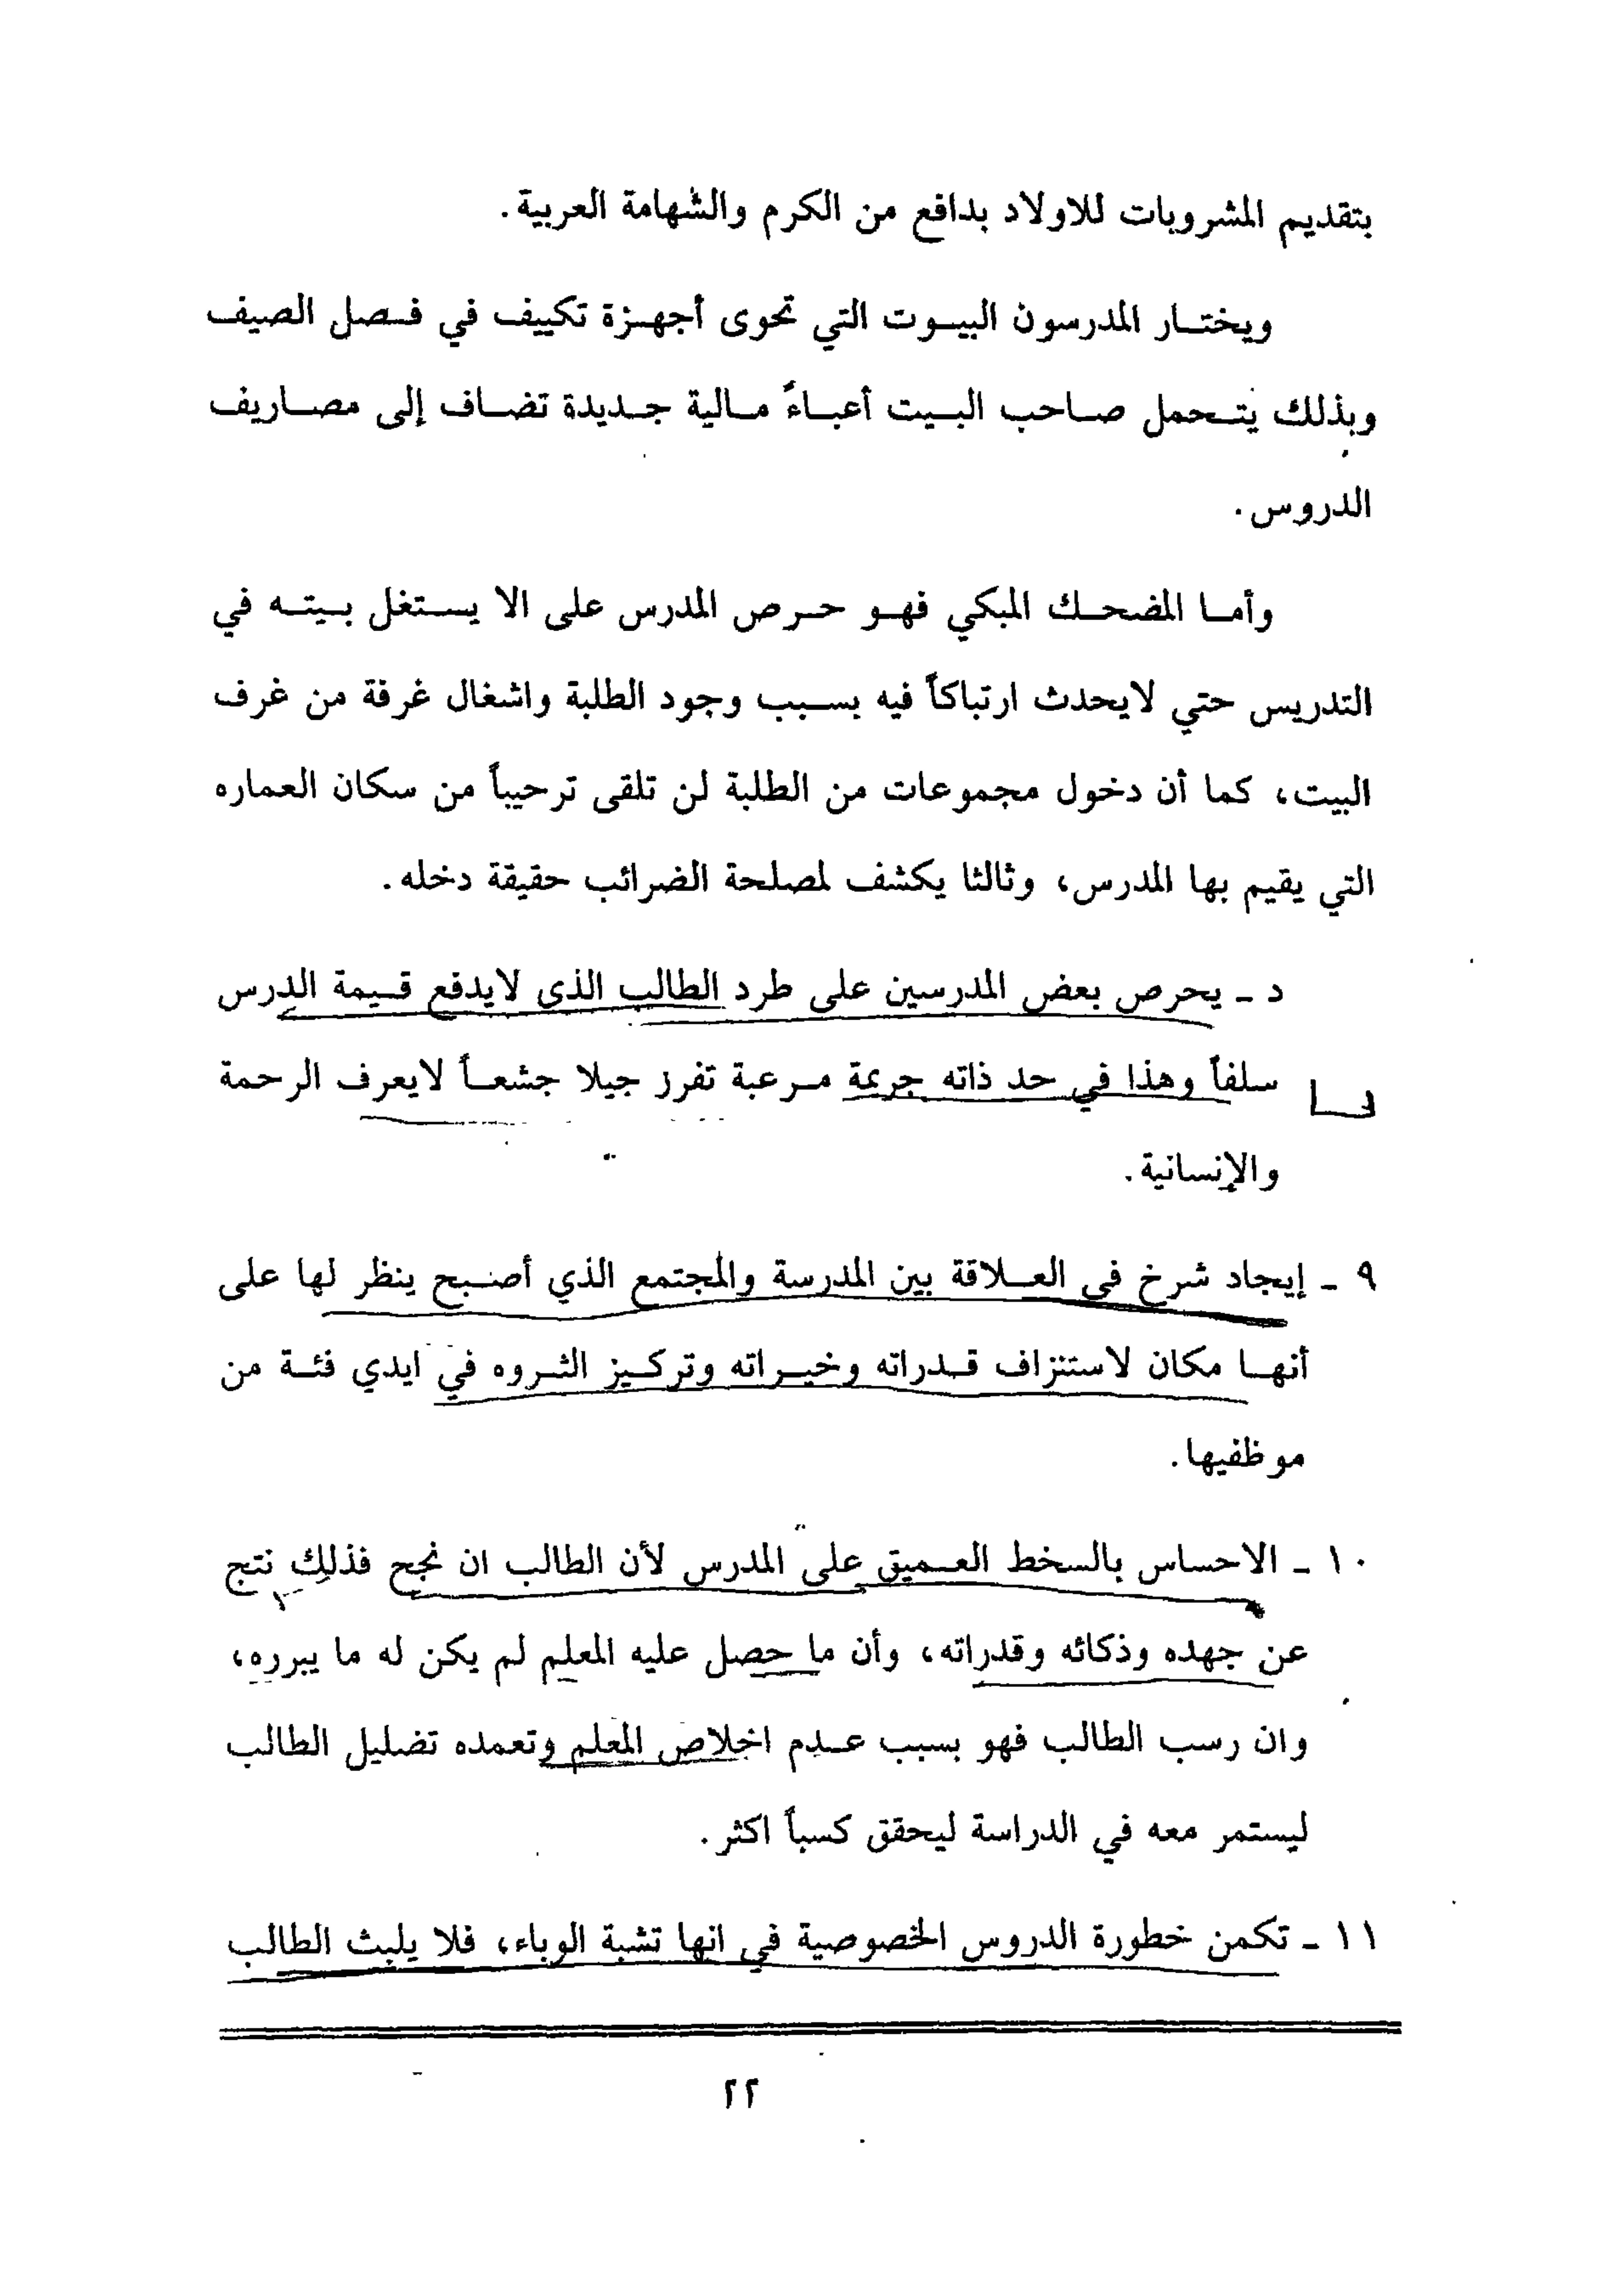 بتقديم المشروبات للاولاد بدافع من الكرم والشهامة العربية.
ويختار المدرسون البيوت التي تحوى أجهزة تكييف في فصل الصيف
وبذلك يتحمل صاحب البيت أعباءً مالية جديدة تضاف إلى مصاريف
الدروس.
وأما المضحك المبكي فهو حرص المدرس على الا يستغل بيته في
التدريس حتي لايحدث ارتباكاً فيه بسبب وجود الطلبة واشغال غرفة من غرف
البيت، كما أن دخول مجموعات من الطلبة لن تلقى ترحيباً من سكان العماره
التي يقيم بها المدرس، وثالثا يكشف لمصلحة الضرائب حقيقة دخله.
د - يحرص بعض المدرسين على طرد الطالب الذى لايدفع قيمة الدرس
سلفاً وهذا في حد ذاته جريمة مرعبة تفرز جيلا جشعاً لايعرف الرحمة
والإنسانية.
٩ - إيجاد شرخ في العلاقة بين المدرسة والمجتمع الذي أصبح ينظر لها على
أنها مكان لاستنزاف قدراته وخبراته وتركيز الثروه في ايدي فئة من
موظفيها.
١٠ - الاحساس بالسخط العميق على المدرس لأن الطالب ان نجح فذلك نتج
عن جهده وذكائه وقدراته، وأن ما حصل عليه المعلم لم يكن له ما يبرره،
وان رسب الطالب فهو بسبب عدم اخلاص المعلم وتعمده تضليل الطالب
ليستمر معه في الدراسة ليحقق كسباً اكثر.
١١ - تكمن خطورة الدروس الخصوصية في انها تشبة الوباء، فلا يلبث الطالب
٢٢